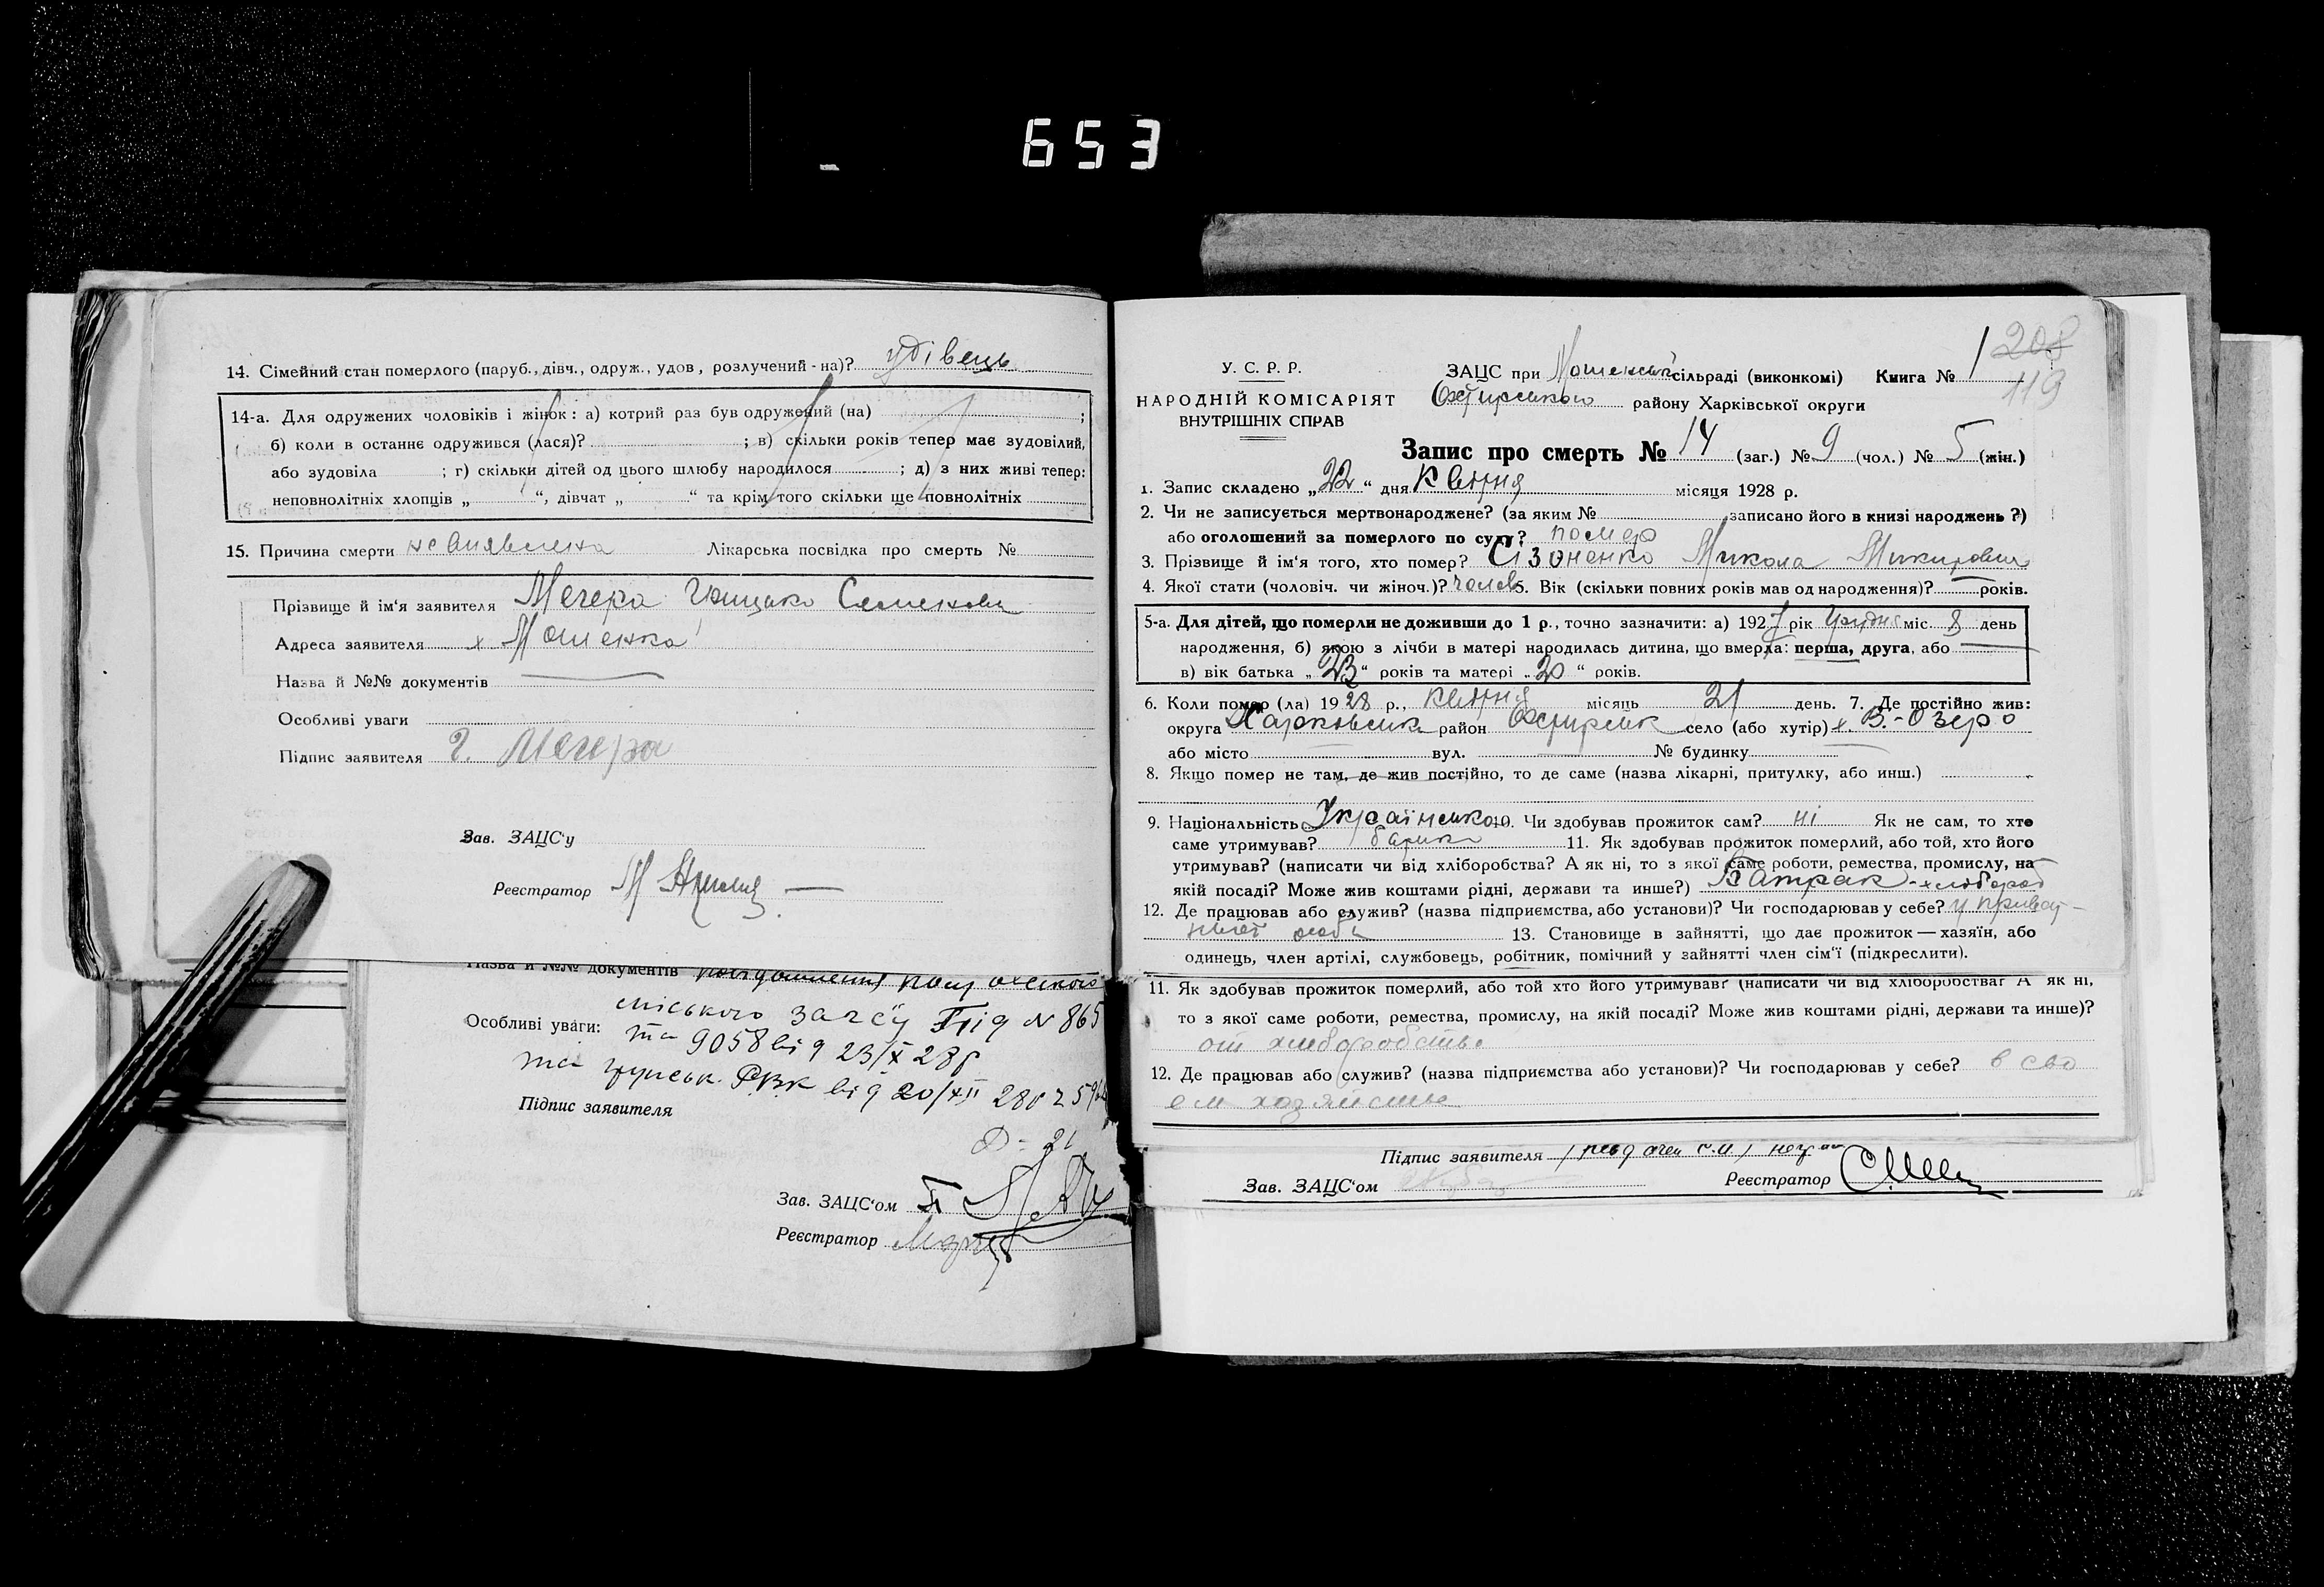 653
14. Сімейний стан померлого (паруб., дівч., одруж., удов, розлучений-на)? удівець
14-а. Для одружених чоловіків і жінок: а) котрий раз був одружений (на) ;
б) коли в останнє одружився (лася)? ; в) скільки років тепер має зудовілий,
або зудовіла ; г) скільки дітей од цього шлюбу народилося ; д) з них живі тепер:
неповнолітніх хлопців „ “, дівчат „ “ та крім того скільки ще повнолітніх
15. Причина смерти Лікарська посвідка про смерть №
Прізвище й ім‘я заявителя Мечера Грицько Семенович
Адреса заявителя х Мошенка
Назва й №№ документів
Особливі уваги
Підпис заявителя Г. Мечера
Зав. ЗАЦС‘у
Реєстратор М
Назва й №№ документів
міського загсу під № 865
Особливі уваги: та 9058 від 23/X 28р
та РВК від 20/XII 28р
Підпис заявителя
Зав. ЗАЦС‘ом
Реєстратор
208
119
У. С. Р. Р.
НАРОДНІЙ КОМІСАРІЯТ
ВНУТРІШНІХ СПРАВ
ЗАЦС при Мошенськ сільраді (виконкомі) Книга № 1
Охтирського району Харківської округи
Запис про смерть № 14 (заг.) № 9 (чол.) № 5 (жін.)
1. Запис складено „22“ дня Квітня місяця 1928 р.
2. Чи не записується мертвонароджене? (за яким № записано його в книзі народжень?)
або оголошений за померлого по суду? помер
3. Прізвище й ім‘я того, хто помер? Сізоненко Микола Микитович
4. Якої стати (чоловіч. чи жіноч.)? чолов 5. Вік (скільки повних років мав од народження)? років.
5-а. Для дітей, що померли не доживши до 1 р., точно зазначити: а) 1927 рік Грудня міс. 8 день
народження, б) якою з лічби в матері народилась дитина, що вмерла: перша, друга, або
в) вік батька „23“ років та матері „20“ років.
6. Коли помер (ла) 1928 р., квітня місяць 21 день. 7. Де постійно жив:
округа Харьковська район Охтирськ село (або хутір) х. В.-Озеро
або місто вул. № будинку
8. Якщо помер не там, де жив постійно, то де саме (назва лікарні, притулку, або инш.)
9. Національність Українська 10. Чи здобував прожиток сам? ні Як не сам, то хто
саме утримував? батько 11. Як здобував прожиток померлий, або той, хто його
утримував? (написати чи від хліборобства? А як ні, то з якої саме роботи, ремества, промислу, на
якій посаді? Може жив коштами рідні, держави та инше?) Батрак - хлібороб
12. Де працював або служив? (назва підприємства, або установи)? Чи господарював у себе? у приват-
ньої особи 13. Становище в зайнятті, що дає прожиток — хазяїн, або
одинець, член артілі, службовець, робітник, помічний у зайнятті член сім‘ї (підкреслити).
11. Як здобував прожиток померлий, або той хто його утримував? (написати чи від хліборобства? А як ні,
то з якої саме роботи, ремества, промислу, на якій посаді? Може жив коштами рідні, держави та инше)?
от хліборобства
12. Де працював або служив? (назва підприємства або установи)? Чи господарював у себе? в сво
ем хозяйстве
Підпис заявителя
Зав. ЗАЦС‘ом Реєстратор